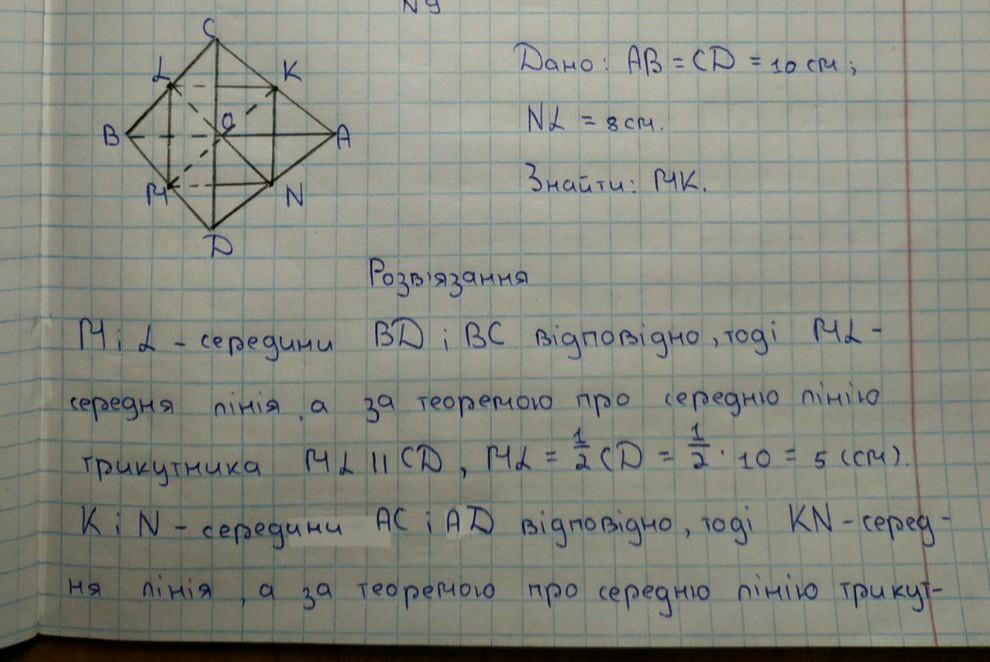 №9
C
L
K
Дано: AB = CD = 10 см;
B
O
A
NL = 8 см.
M
N
Знайти: MK.
D
Розв'язання
M i L - середини BD i BC відповідно, тоді ML -
середня лінія, а за теоремою про середню лінію
трикутника ML || CD, ML = 1/2 CD = 1/2 · 10 = 5 (см).
K i N - середини AC i AD відповідно, тоді KN - серед-
ня лінія, а за теоремою про середню лінію трикут-